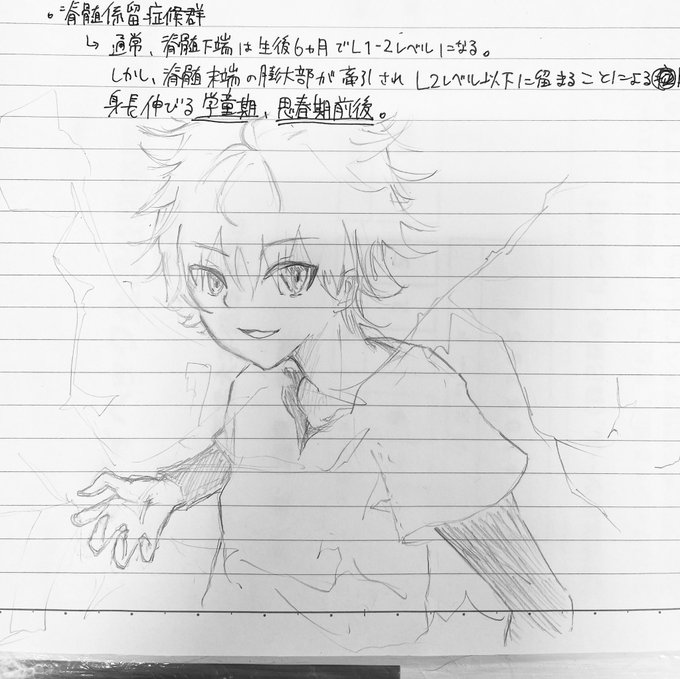 ・脊髄係留症候群
↳ 通常、脊髄下端は生後6ヵ月でL1-2レベルになる。
しかし、脊髄末端の膨大部が牽引されL2レベル以下に留まることによる
身長伸びる学童期、思春期前後。